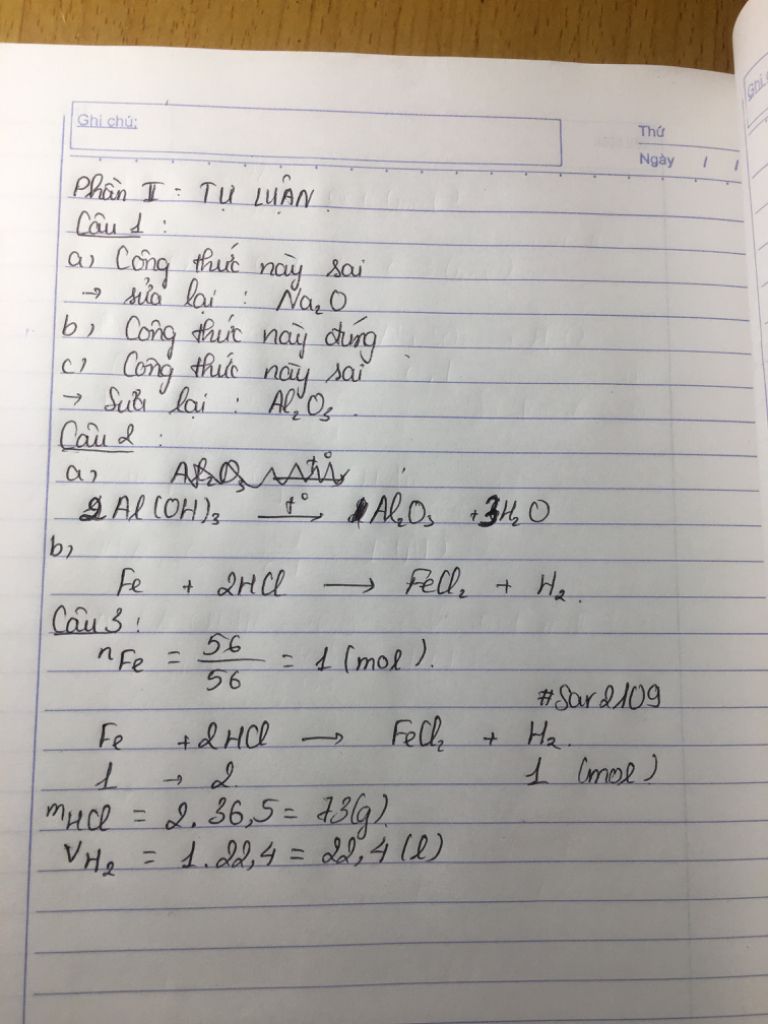 Ghi chú:
Thứ
Ngày / /
Phần II : TỰ LUẬN.
Câu 1 :
a, Công thức này sai
→ sửa lại : Na₂O
b, Công thức này đúng
c, Công thức này sai
→ Sửa lại : Al₂O₃.
Câu 2 :
a, Al₂O₃ t°
2Al(OH)₃ t° → Al₂O₃ + 3H₂O
b,
Fe + 2HCl → FeCl₂ + H₂.
Câu 3 :
nFe = 56/56 = 1 (mol).
#Sar2109
Fe + 2HCl → FeCl₂ + H₂.
1 → 2 1 (mol)
mHCl = 2.36,5 = 73(g).
VH₂ = 1.22,4 = 22,4 (l)